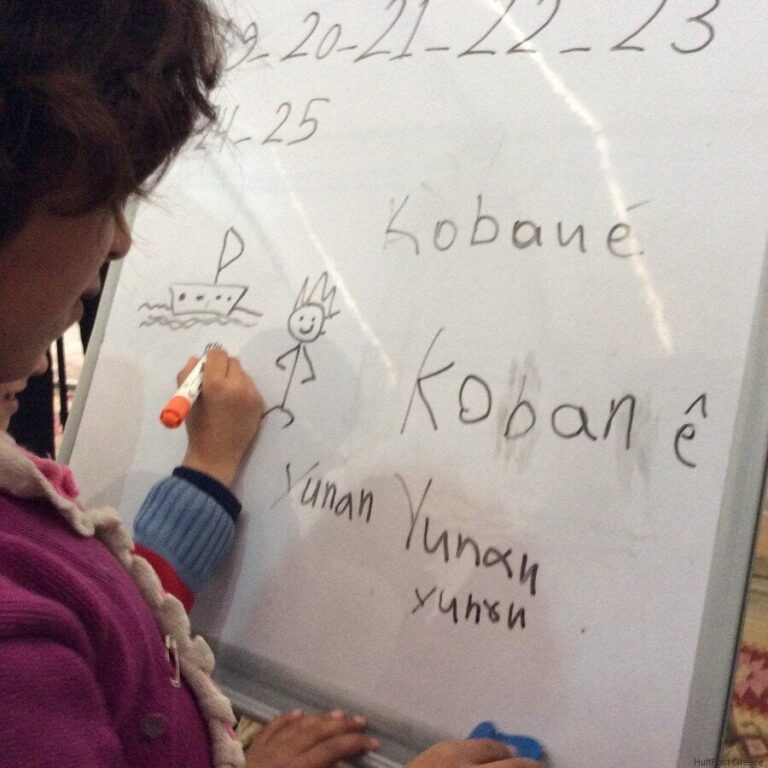 19_20-21_22_23
24_25
Kobané
Kobanê
Yunan Yunan
yunan
HuffPost Greece